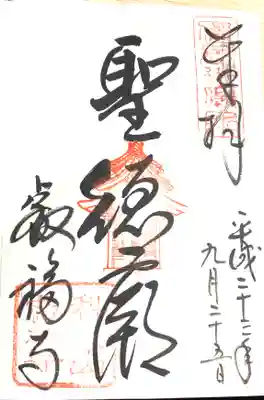 奉拝
平成二十二年
九月二十五日
聖徳廟
叡福寺